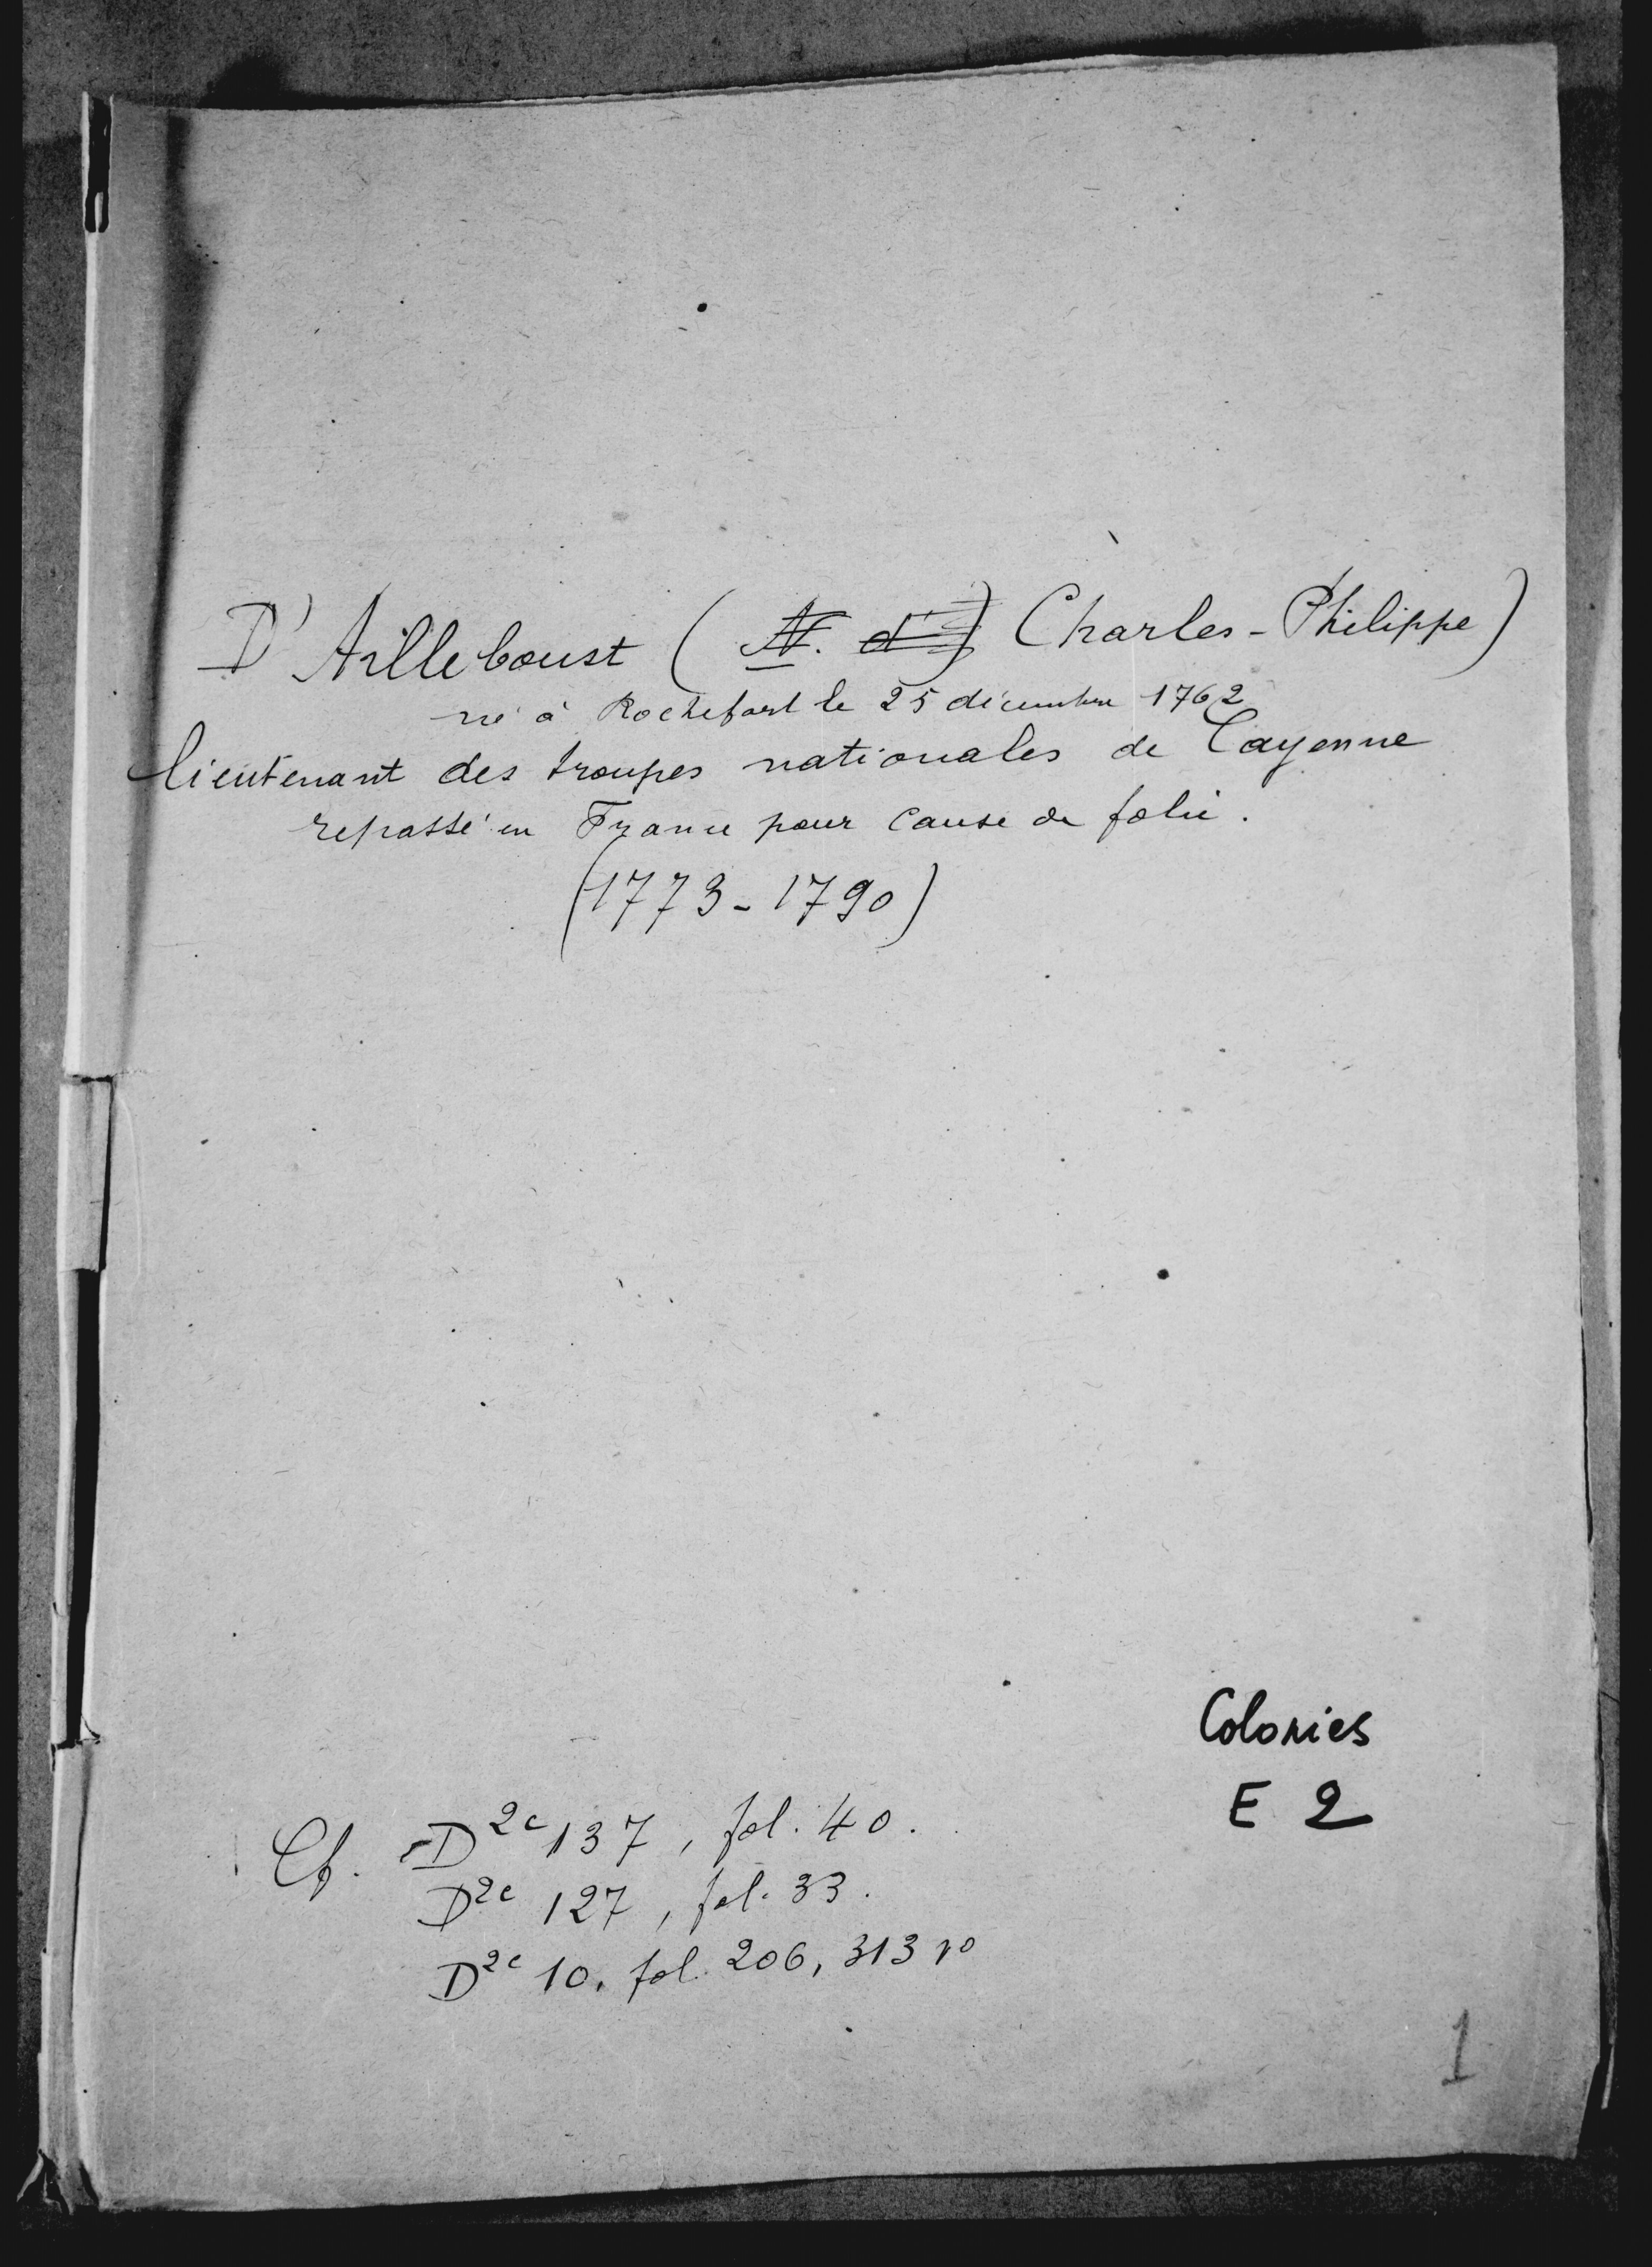 D'Ailleboust (N. d') Charles-Philippe)
né à Rochefort le 25 décembre 1762
lieutenant des troupes nationales de Cayenne
repassé en France pour cause de folie.
(1773-1790)
Colonies
E 2
Cf. D2c 137, fol. 40.
D2c 127, fol. 33.
D2c 10, fol. 206, 313 vo
1